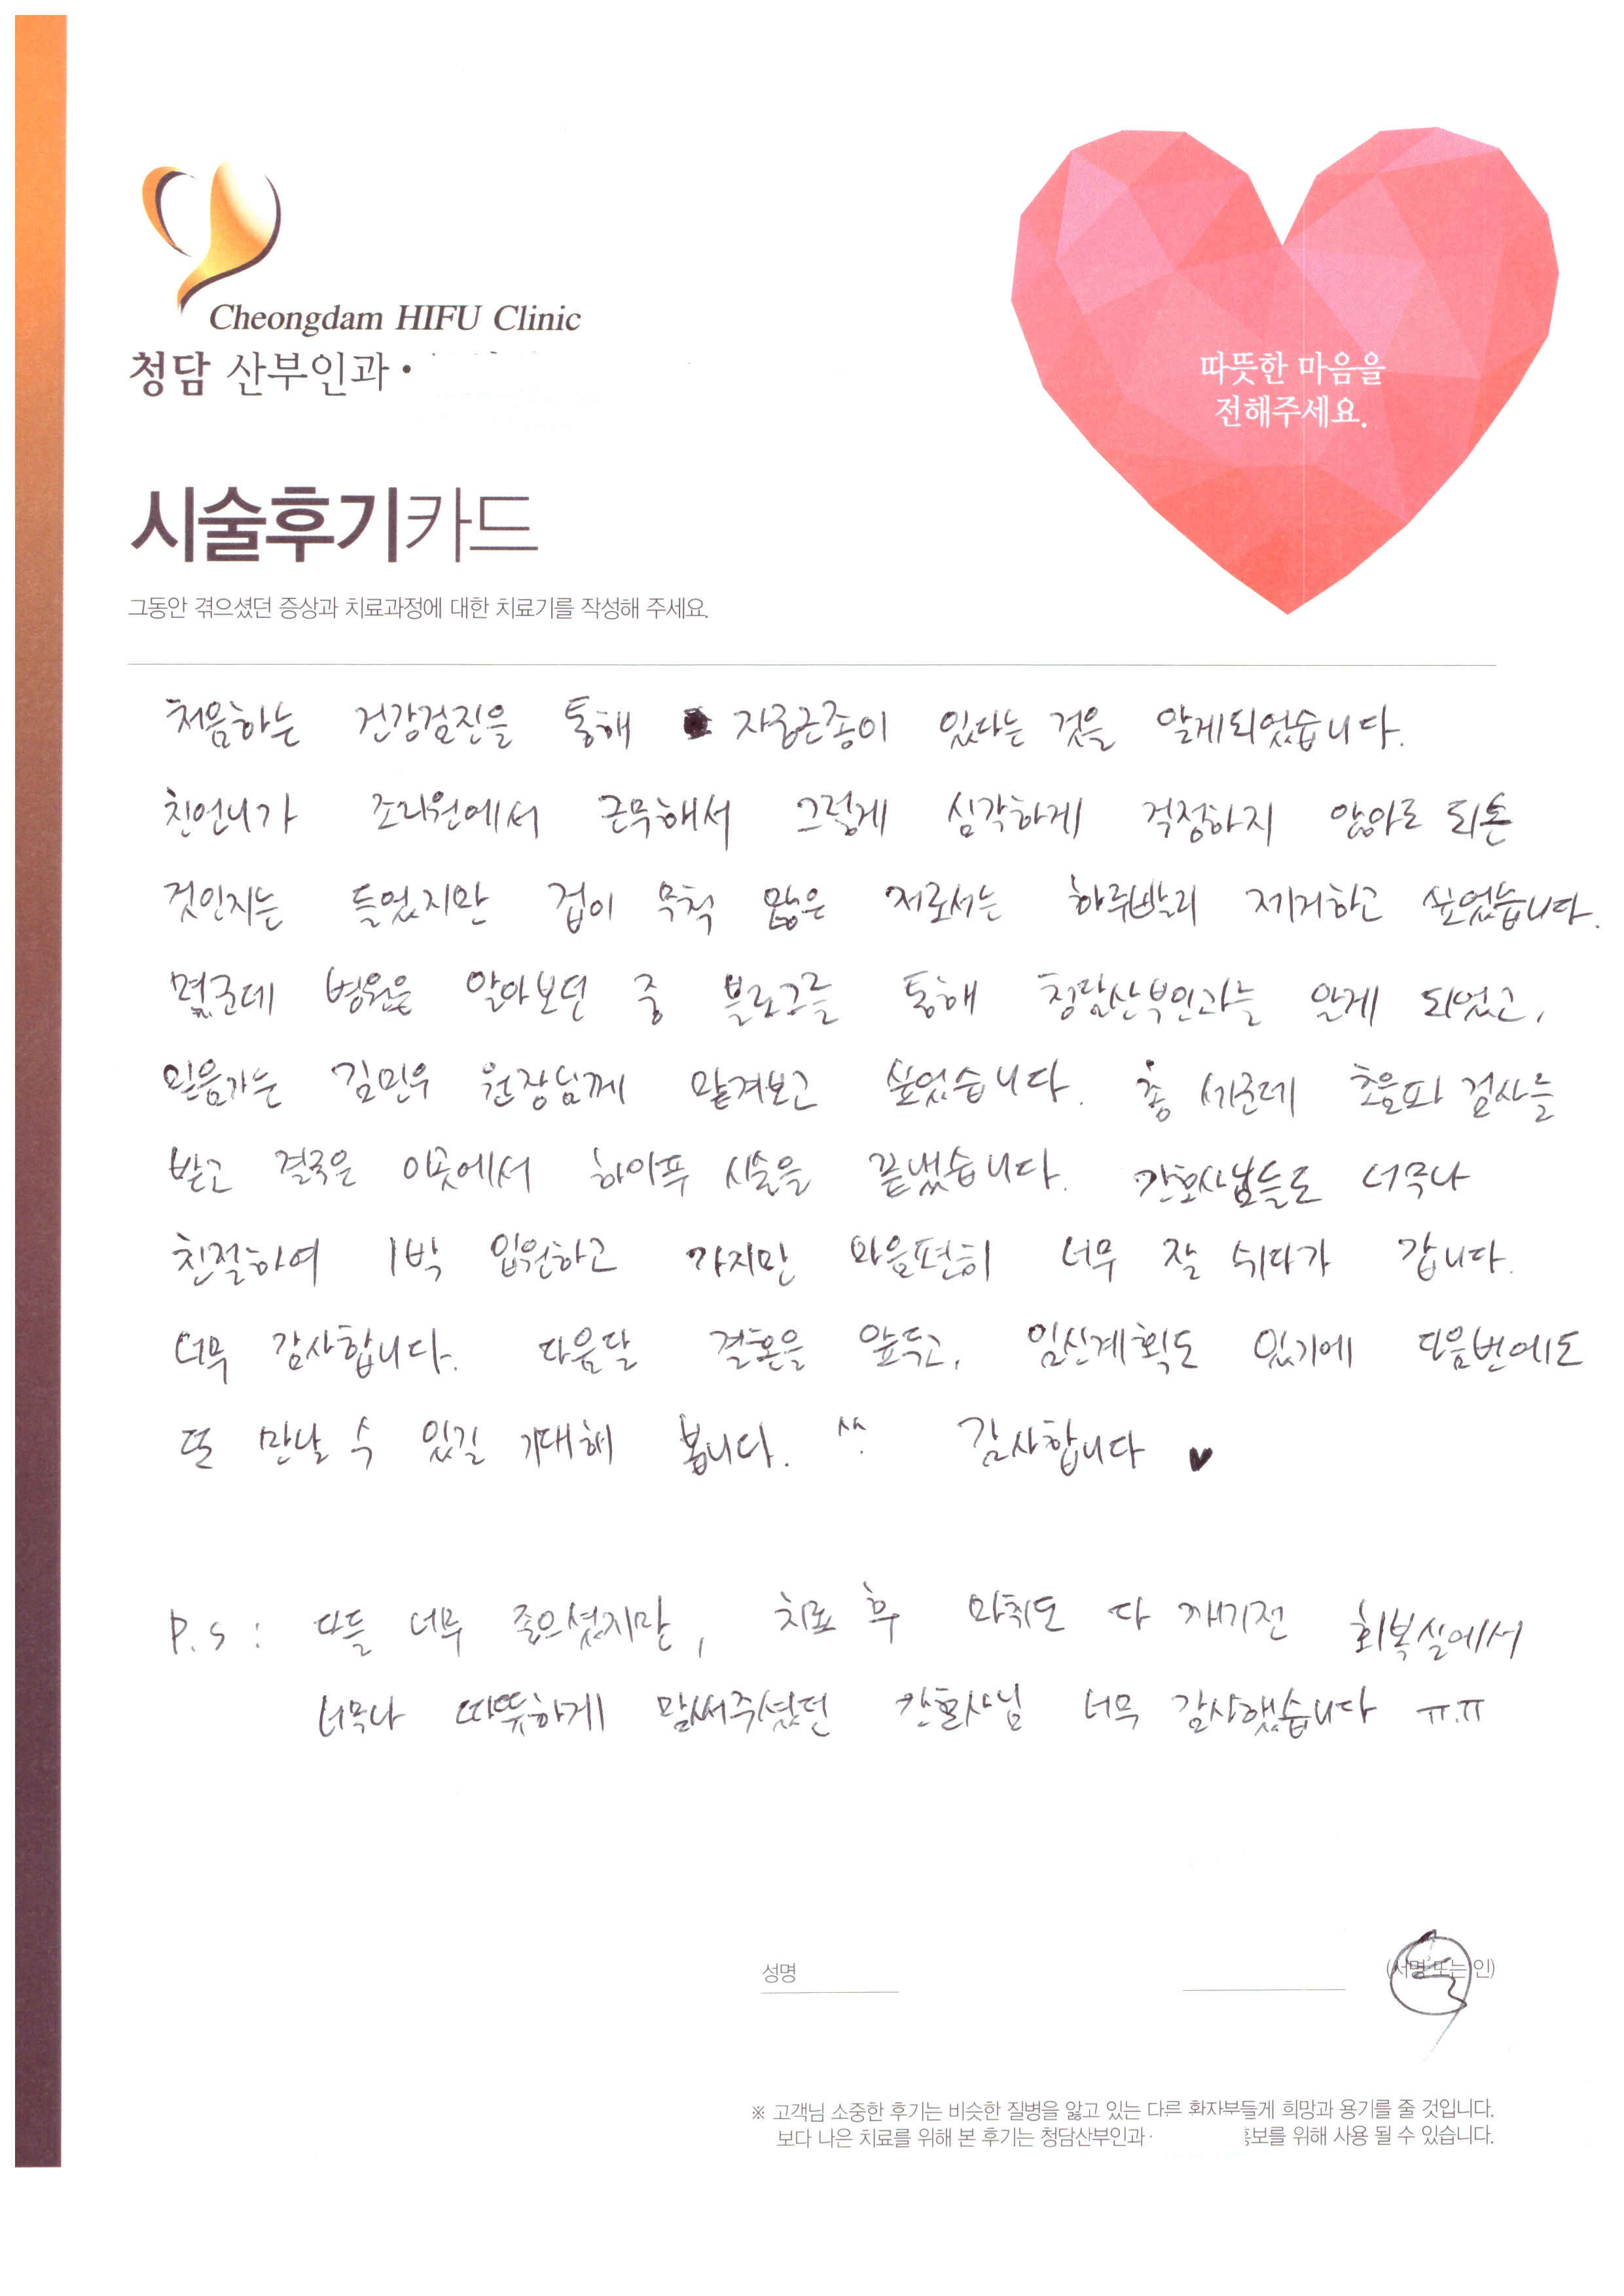 Cheongdam HIFU Clinic
청담 산부인과•
따뜻한 마음을
전해주세요.
시술후기카드
그동안 겪으셨던 증상과 치료과정에 대한 치료기를 작성해 주세요.
처음하는 건강검진을 통해 자궁근종이 있다는 것을 알게되었습니다.
친언니가 조리원에서 근무해서 그렇게 심각하게 걱정하지 않아도 되는
것인지는 들었지만 겁이 무척 많은 저로서는 하루빨리 제거하고 싶었습니다.
몇군데 병원을 알아보던 중 블로그를 통해 청담산부인과를 알게 되었고,
믿음가는 김민우 원장님께 맡겨보고 싶었습니다. 총 세군데 초음파 검사를
받고 결국은 이곳에서 하이푸 시술을 끝냈습니다. 간호사님들도 너무나
친절하여 1박 입원하고 가지만 마음편히 너무 잘 쉬다가 갑니다.
너무 감사합니다. 다음달 결혼을 앞두고, 임신계획도 있기에 다음번에도
또 만날 수 있길 기대해 봅니다. ^^ 감사합니다 ♥
P.S : 다들 너무 좋으셨지만, 치료 후 마취도 다 깨기전 회복실에서
너무나 따뜻하게 말써주셨던 간호사님 너무 감사했습니다 ㅠ.ㅠ
성명
(서명 또는 인)
※ 고객님 소중한 후기는 비슷한 질병을 앓고 있는 다른 환자부들게 희망과 용기를 줄 것입니다.
보다 나은 치료를 위해 본 후기는 청담산부인과· 홍보를 위해 사용 될 수 있습니다.